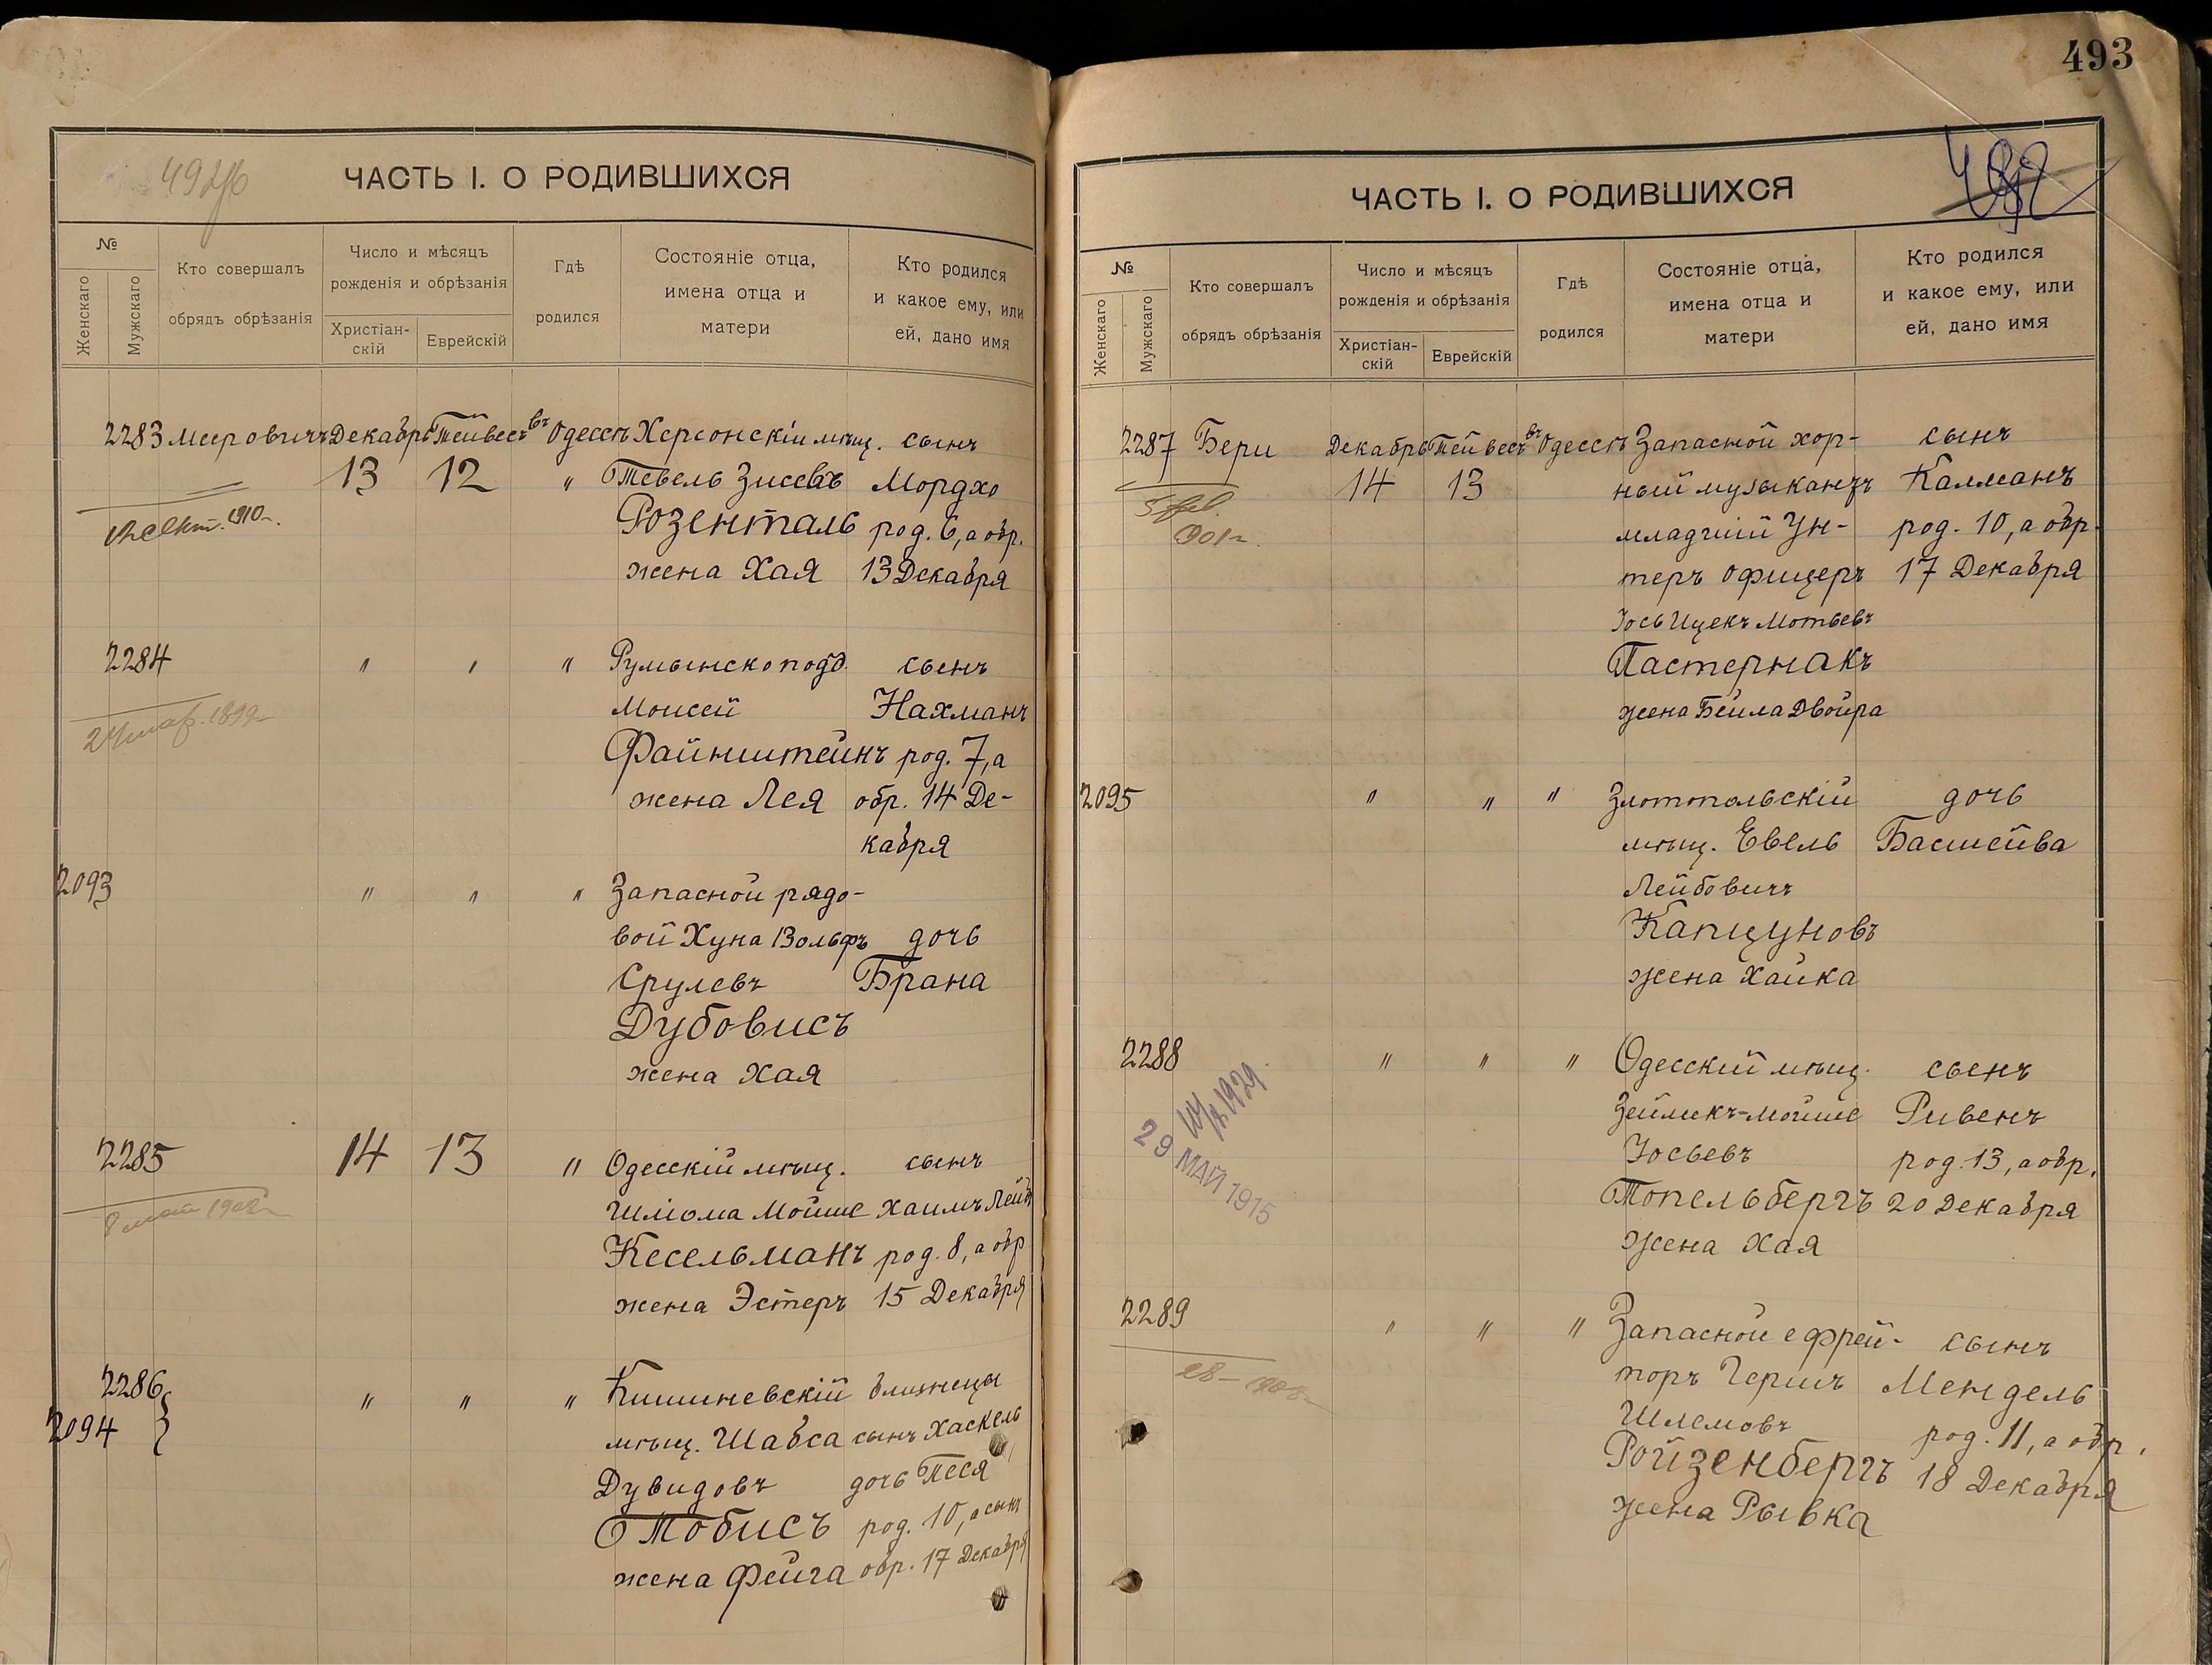 493
ЧАСТЬ I. О РОДИВШИХСЯ
№
Женскаго
Мужскаго
Кто совершалъ
обрядъ обрѣзанія
Число и мѣсяцъ
рожденія и обрѣзанія
Христіан-
скій
Еврейскій
Гдѣ
родился
Состояніе отца,
имена отца и
матери
Кто родился
и какое ему, или
ей, дано имя
2283 Мееровичъ Декабрь Тейвесъ въ Одессѣ Херсонскій мѣщ. сынъ
13 12 " Тевель Зисевъ Мордхо
Розенталь род. 6, а обр.
1910 г.
жена Хая 13 Декабря
2284 " " " Румынскоподд. сынъ
24 мар. 1899 г.
Моисей Нахманъ
Файнштейнъ род. 7, а
жена Лея обр. 14 Де-
кабря
2093 " " " Запасной рядо-
вой Хуна Вольфъ дочь
Срулевъ Брана
Дубовисъ
жена Хая
2285 14 13 " Одесскій мѣщ. сынъ
8 май 1908 г.
Шліома Мойше Хаимъ Лейб
Кесельманъ род. 8, а обр
жена Эстеръ 15 Декабря
2286 " " " Кишиневскій близнецы
2094 мѣщ. Шабса сынъ Хаскель
Дувидовъ дочь Песя
Тобисъ род. 10, а сынъ
жена Фейга обр. 17 Декабря
ЧАСТЬ I. О РОДИВШИХСЯ
№
Женскаго
Мужскаго
Кто совершалъ
обрядъ обрѣзанія
Число и мѣсяцъ
рожденія и обрѣзанія
Христіан-
скій
Еврейскій
Гдѣ
родился
Состояніе отца,
имена отца и
матери
Кто родился
и какое ему, или
ей, дано имя
2287 Бери Декабрь Тейвесъ въ Одессѣ Запасной хор- сынъ
14 13 ный музыкантъ Калманъ
младшій Ун- род. 10, а обр.
теръ офицеръ 17 Декабря
Іось Ицекъ Мотьевъ
Пастернакъ
жена Бейла Двойра
2095 " " " Златопольскій дочь
мѣщ. Евель Басшейва
Лейбовичъ
Капцуновъ
жена Хайка
2288 " " " Одесскій мѣщ. сынъ
29 МАЙ 1915
Зейликъ-Мойше Ривенъ
Іосьевъ род. 13, а обр.
Топельбергъ 20 Декабря
жена Хая
2289 " " " Запасной ефрей- сынъ
торъ Гершъ Мендель
Шлемовъ род. 11, а обр.
Ройзенбергъ 18 Декабря
жена Рывка